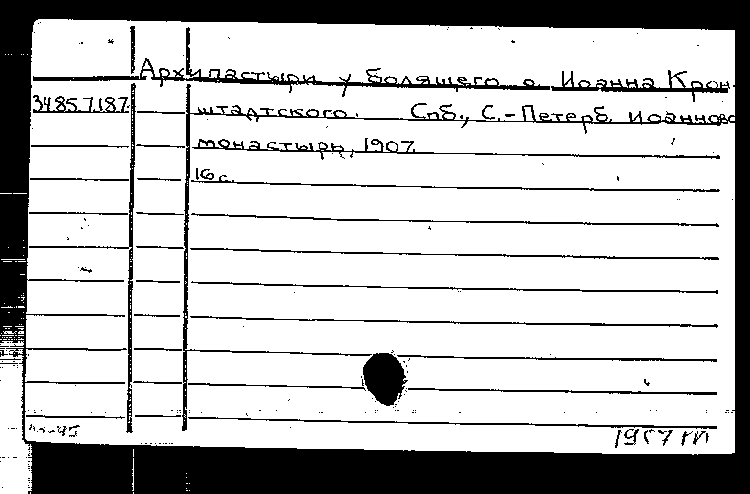 Архипастыри у болящего о. Иоанна Крон-
34.85.7.187. штадтского. Спб., С.-Петерб. Иоанновс
монастырь, 1907.
16 с.